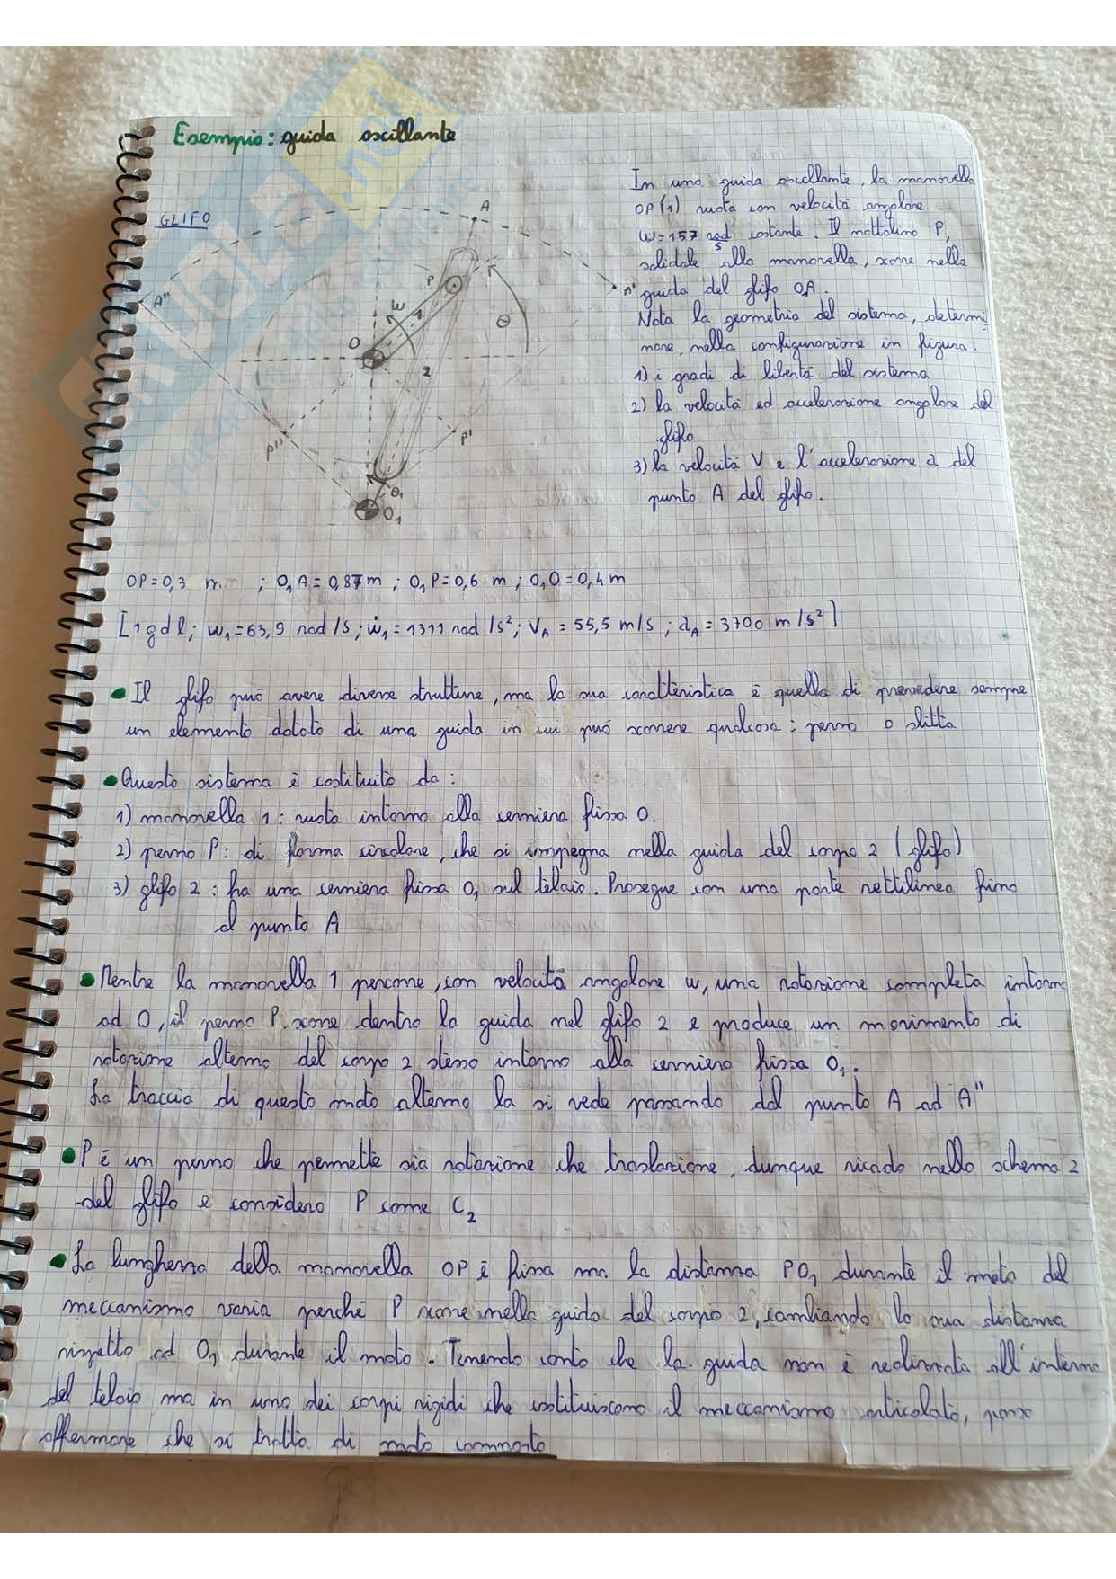 Esempio: guida oscillante
GLIFO
In una guida oscillante, la manovella
OP(1) ruota con velocità angolare
ω=157 rad/s costante. Il nottolino P,
solidale alla manovella, scorre nella
guida del glifo O₁A.
Nota la geometria del sistema, determi
nare, nella configurazione in figura:
1) i gradi di libertà del sistema
2) la velocità ed accelerazione angolare del
glifo
3) la velocità V e l'accelerazione a del
punto A del glifo.
A
A"
A'
P
O
ω
1
θ
2
P"
P'
O₁
O₁
OP=0,3 m ; O₁A=0,87m ; O₁P=0,6 m ; O₁O=0,4m
[1gdl; ω₁=63,9 rad/s; ω̇₁=1311 rad/s²; V_A = 55,5 m/s ; a_A=3700 m/s²]
• Il glifo può avere diverse strutture, ma la sua caratteristica è quella di prevedere sempre
un elemento dotato di una guida in cui può scorrere qualcosa: perno o slitta
• Questo sistema è costituito da:
1) manovella 1: ruota intorno alla cerniera fissa O
2) perno P: di forma circolare, che si impegna nella guida del corpo 2 (glifo)
3) glifo 2: ha una cerniera fissa O₁ sul telaio. Prosegue con una parte rettilinea fino
al punto A
• Mentre la manovella 1 percorre, con velocità angolare ω, una rotazione completa intorno
ad O, il perno P scorre dentro la guida nel glifo 2 e produce un movimento di
rotazione alterno del corpo 2 stesso intorno alla cerniera fissa O₁.
La traccia di questo moto alterno la si vede passando dal punto A ad A"
• P è un perno che permette sia rotazione che traslazione, dunque ricado nello schema 2
del glifo e considero P come C₂
• La lunghezza della manovella OP è fissa ma la distanza PO₁ durante il moto del
meccanismo varia perché P scorre nella guida del corpo 2, cambiando la sua distanza
rispetto ad O₁ durante il moto. Tenendo conto che la guida non è realizzata all'interno
del telaio ma in uno dei corpi rigidi che costituiscono il meccanismo articolato, posso
affermare che si tratta di moto composto